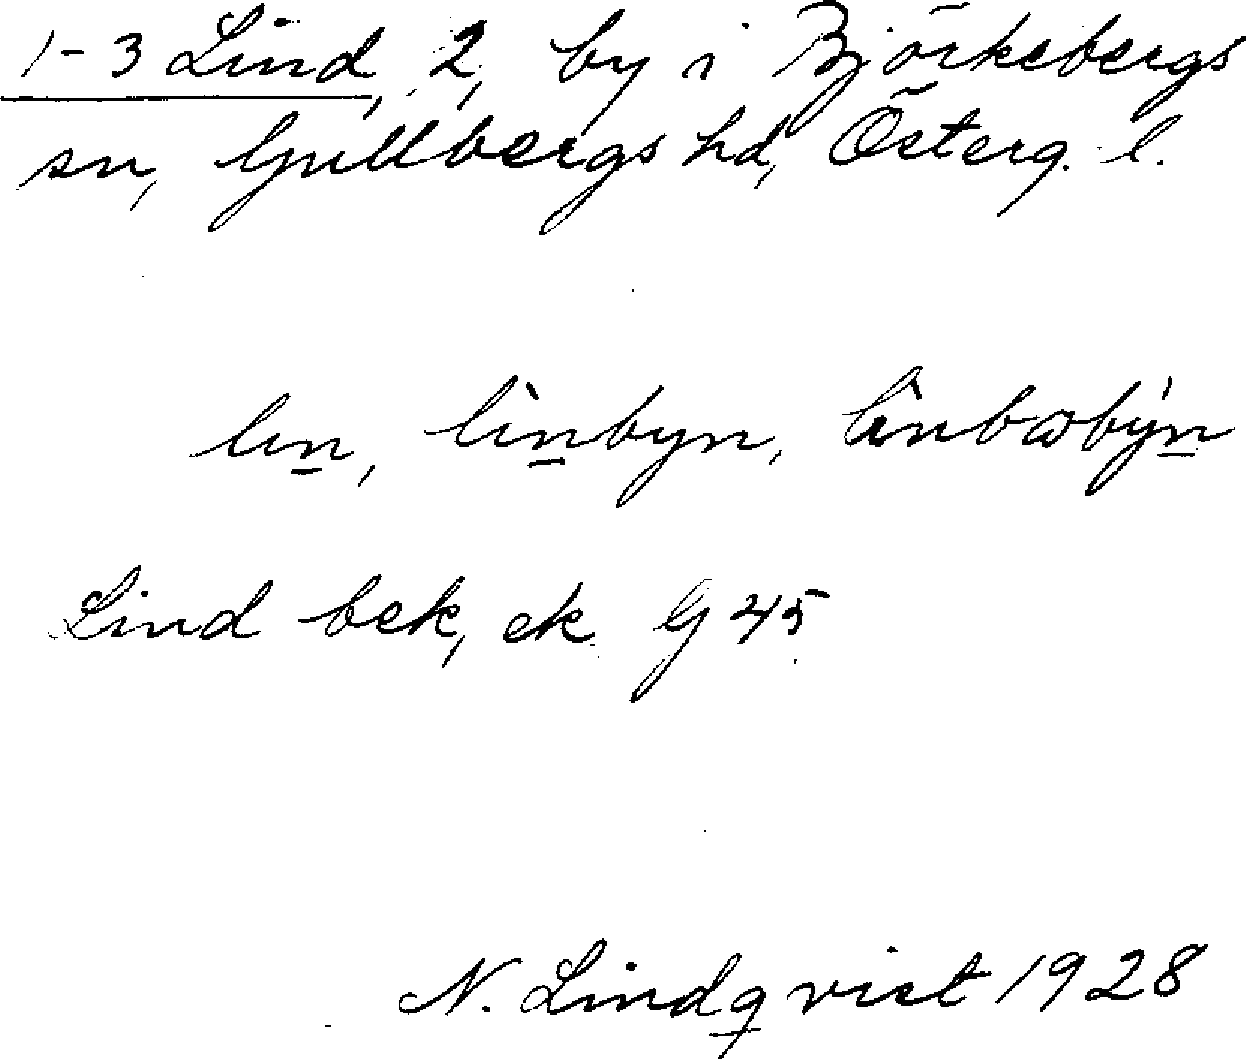 1-3 Lind, 2, by i Björkebergs
sn, Gullbergs hd, Österg. l.
lin, lìnbyn,
Lind bek, ek G 45
N. Lindqvist 1928